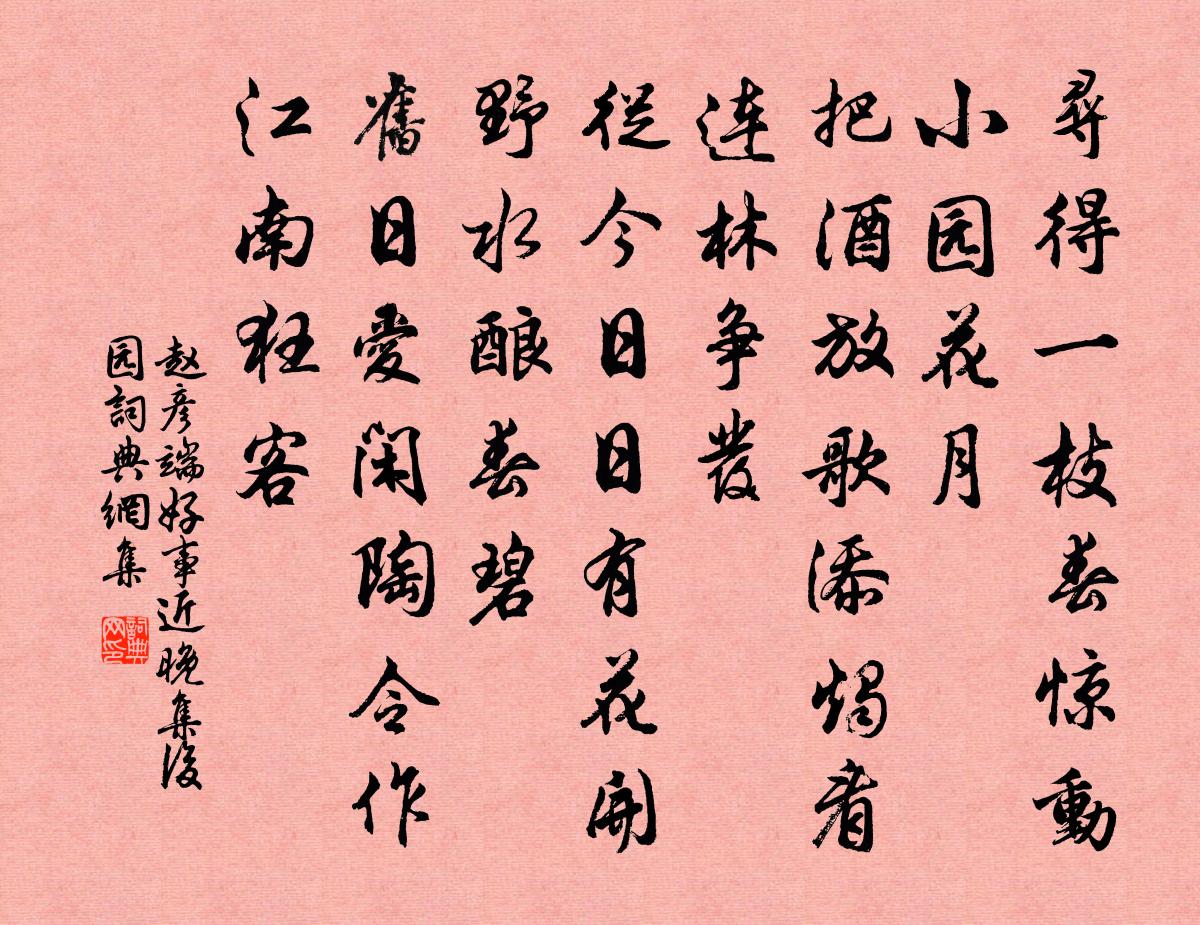 尋得一枝春惊動
小园花月
把酒放歌添烛看
连林争發
從今日日有花開
野水酿春碧
舊日愛闲陶令作
江南狂客
赵彦端好事近晚集後
园詞典網集
詞典网印